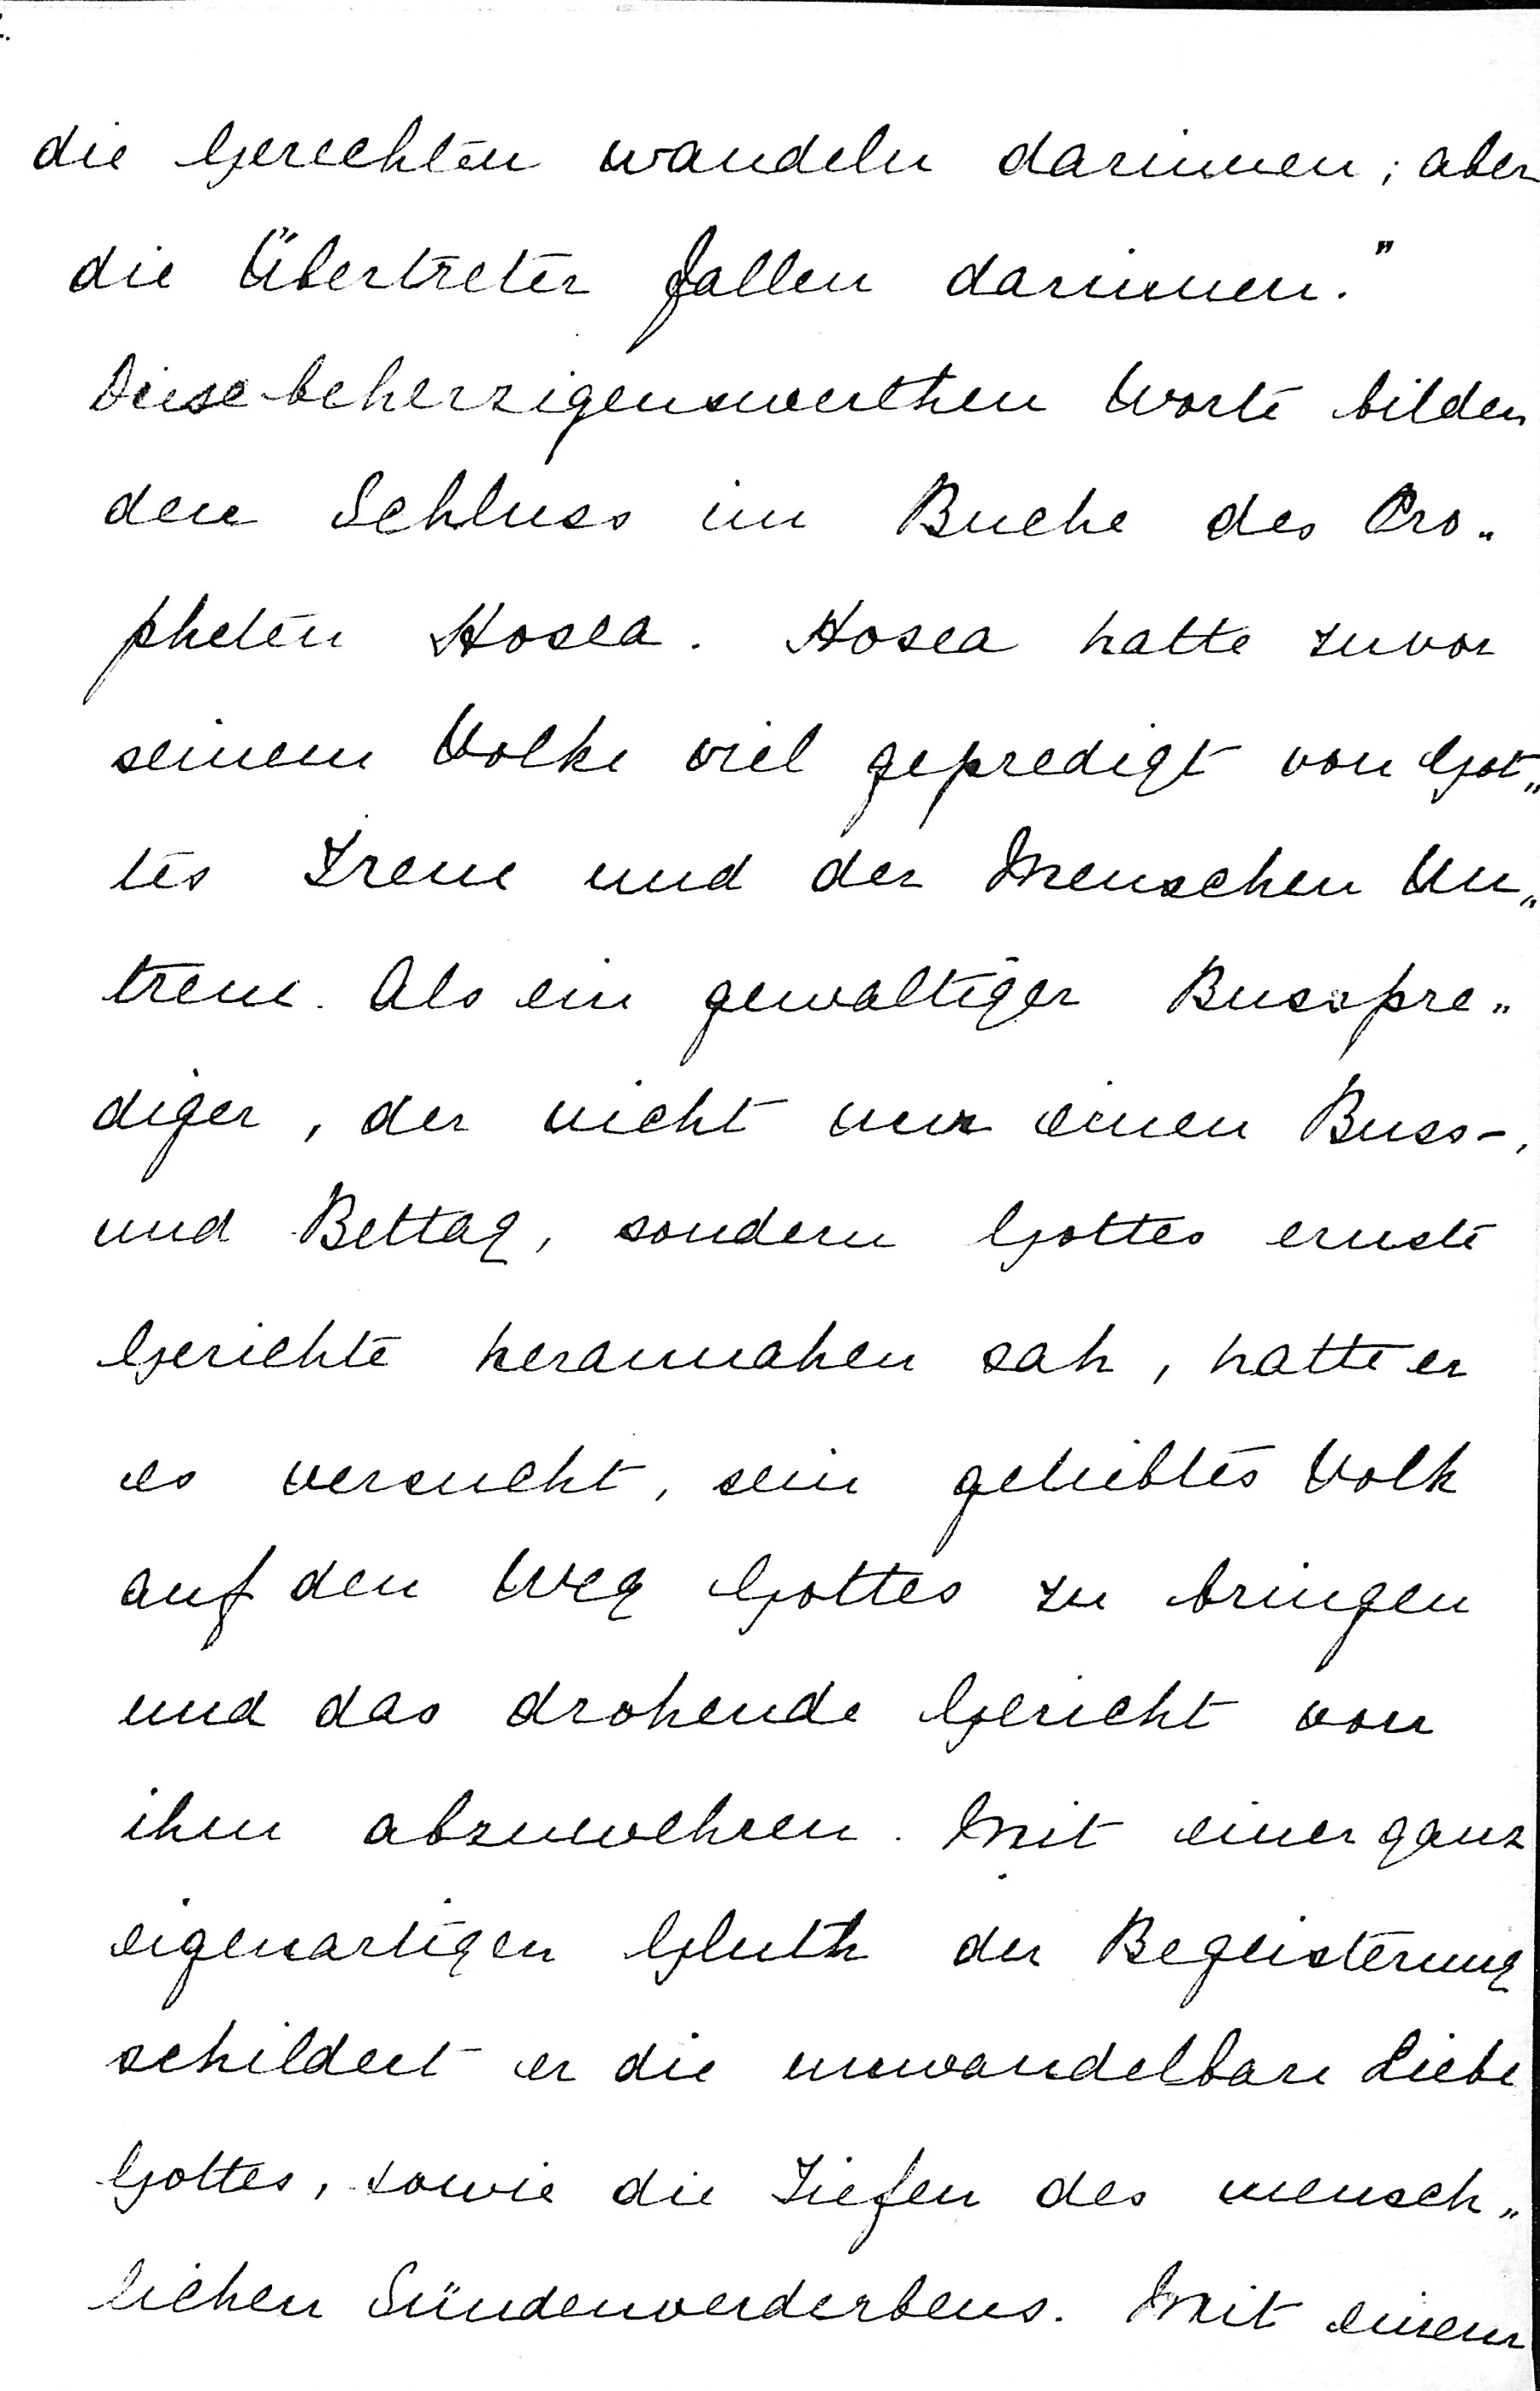 die Gerechten wandeln darinnen; aber
die Übertreter fallen darinnen."
Diese beherzigenswerthen Worte bilden
den Schluss im Buche des Pro„
pheten Hosea. Hosea hatte zuvor
seinem Volke viel gepredigt von Got„
tes Treue und der Menschen Un„
treue. Als ein gewaltiger Busspre„
diger, der nicht nur einen Buss-,
und Bettag, sondern Gottes ernste
Gerichte herannahen sah, hatte er
es versucht, sein geliebtes Volk
auf den Weg Gottes zu bringen
und das drohende Gericht von
ihm abzuwehren. Mit einer ganz
eigenartigen Gluth der Begeisterung
schildert er die unwandelbare Liebe
Gottes, sowie die Tiefen des mensch„
lichen Sündenverderbens. Mit einem